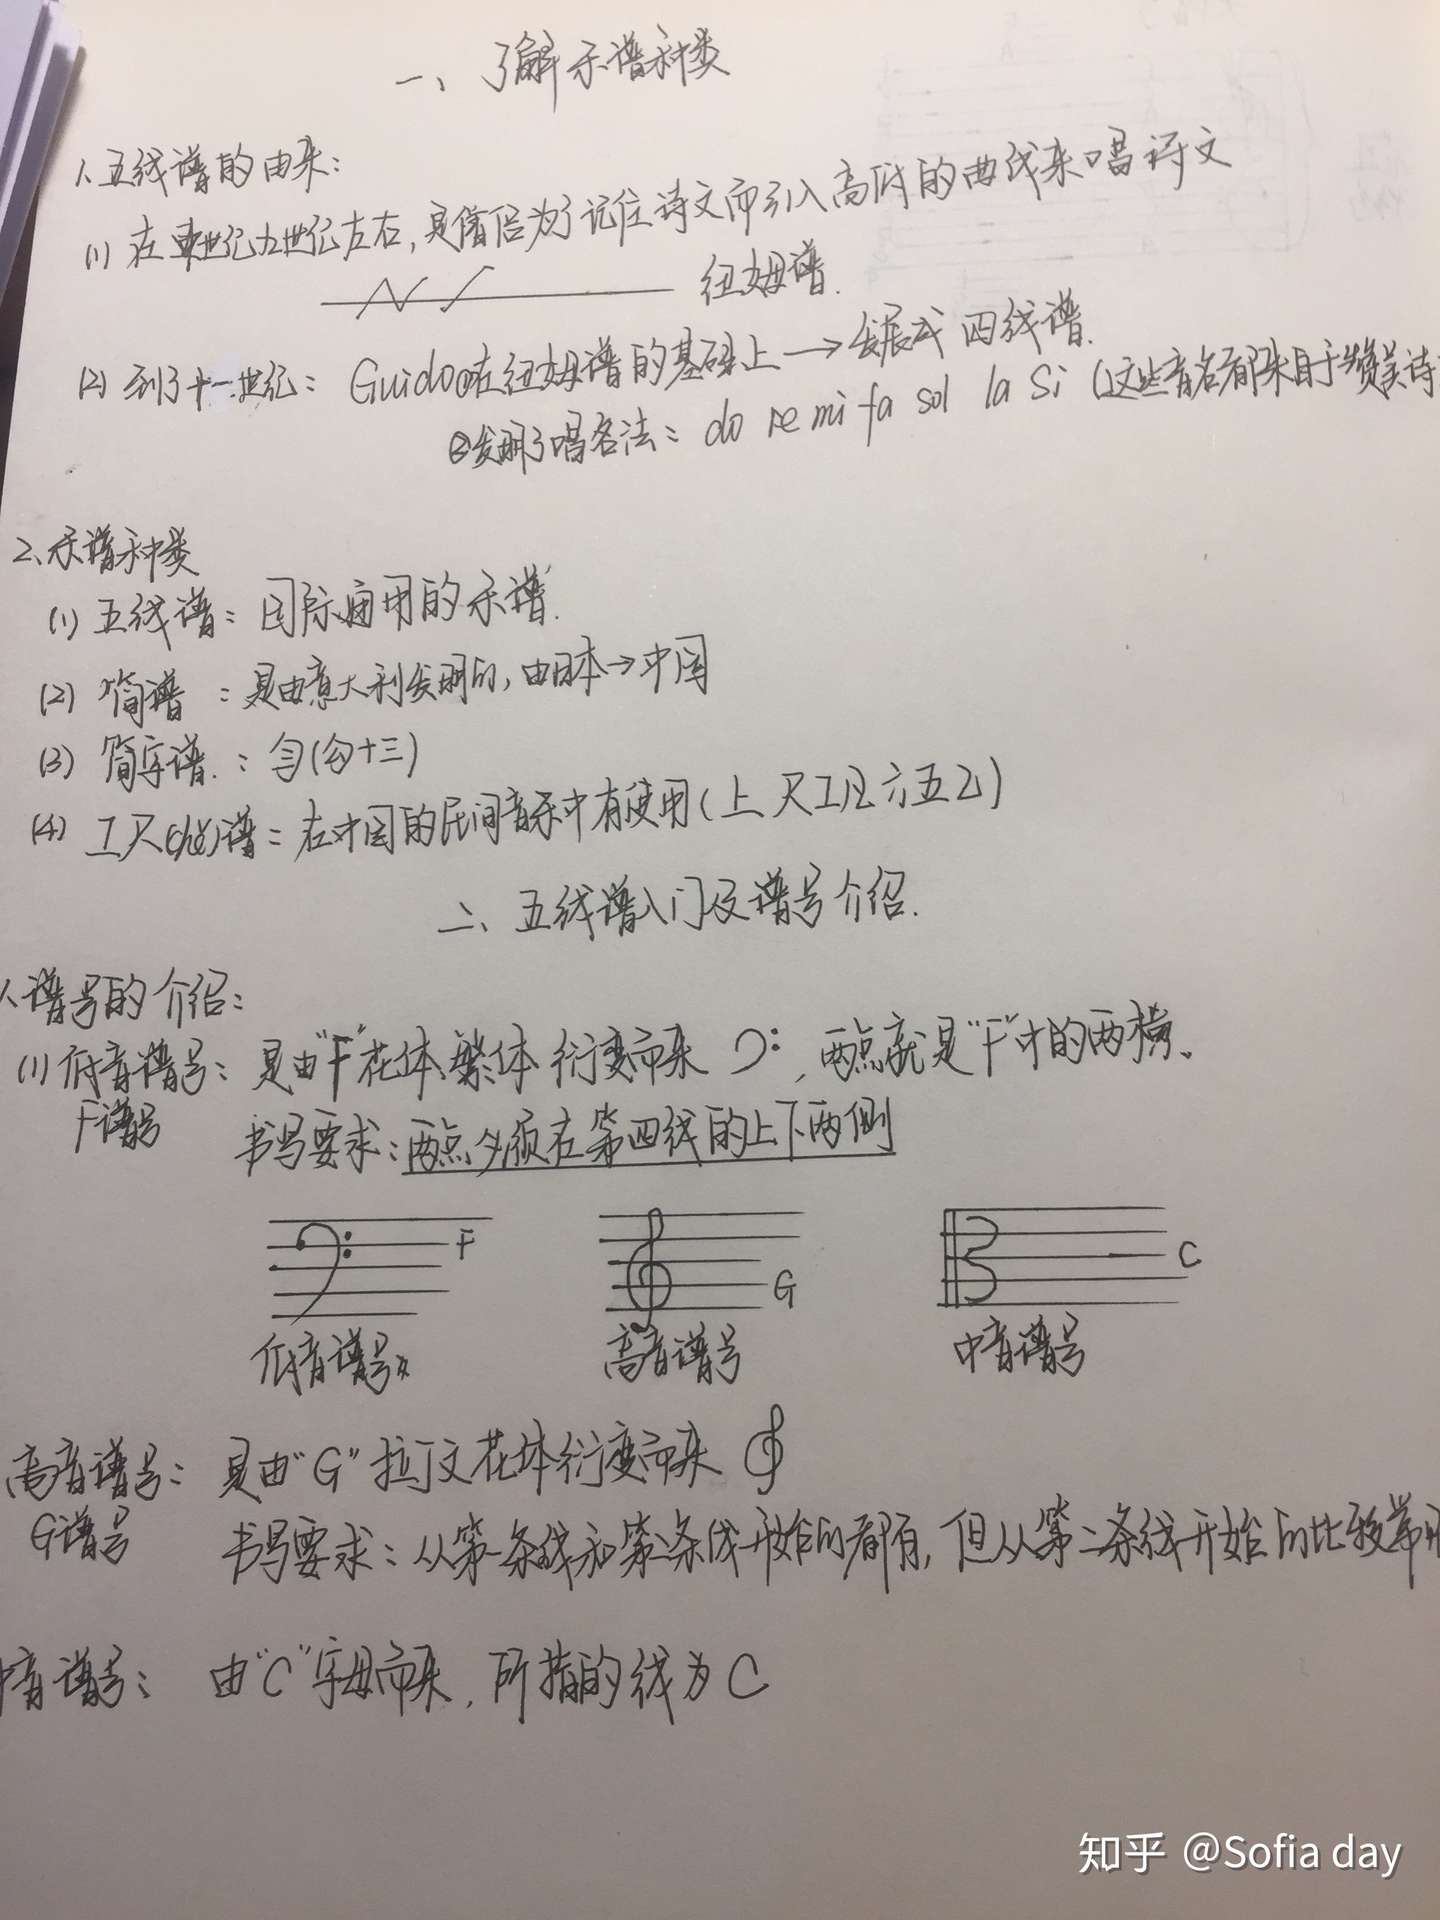 一、了解乐谱种类
1、五线谱的由来：
(1) 在世纪九世纪左右，是僧侣为了记住诗文而引入高低的曲线来唱诗文
纽姆谱.
(2) 到了十一世纪： Guido①在纽姆谱的基础上→发展成 四线谱.
②发明了唱名法： do re mi fa sol la si (这些音名都来自于赞美诗
2、乐谱种类
(1) 五线谱：国际通用的乐谱.
(2) 简谱 ：是由意大利发明的，由日本→中国
(3) 简字谱.：(勾十三)
(4) 工尺(che)谱：在中国的民间音乐中有使用(上 尺工凡六五乙)
二、五线谱入门及谱号介绍.
1、谱号的介绍：
(1) 低音谱号：是由"F"花体繁体衍变而来 ，两点就是"F"中的两横。
F谱号 书写要求：两点必须在第四线的上下两侧
F G C
低音谱号 高音谱号 中音谱号
高音谱号：是由"G"拉丁文花体衍变而来
G谱号 书写要求：从第一条线和第二条线开始的都有，但从第二条线开始的比较常用
中音谱号： 由"C"字母而来，所指的线为C
知乎 @Sofia day